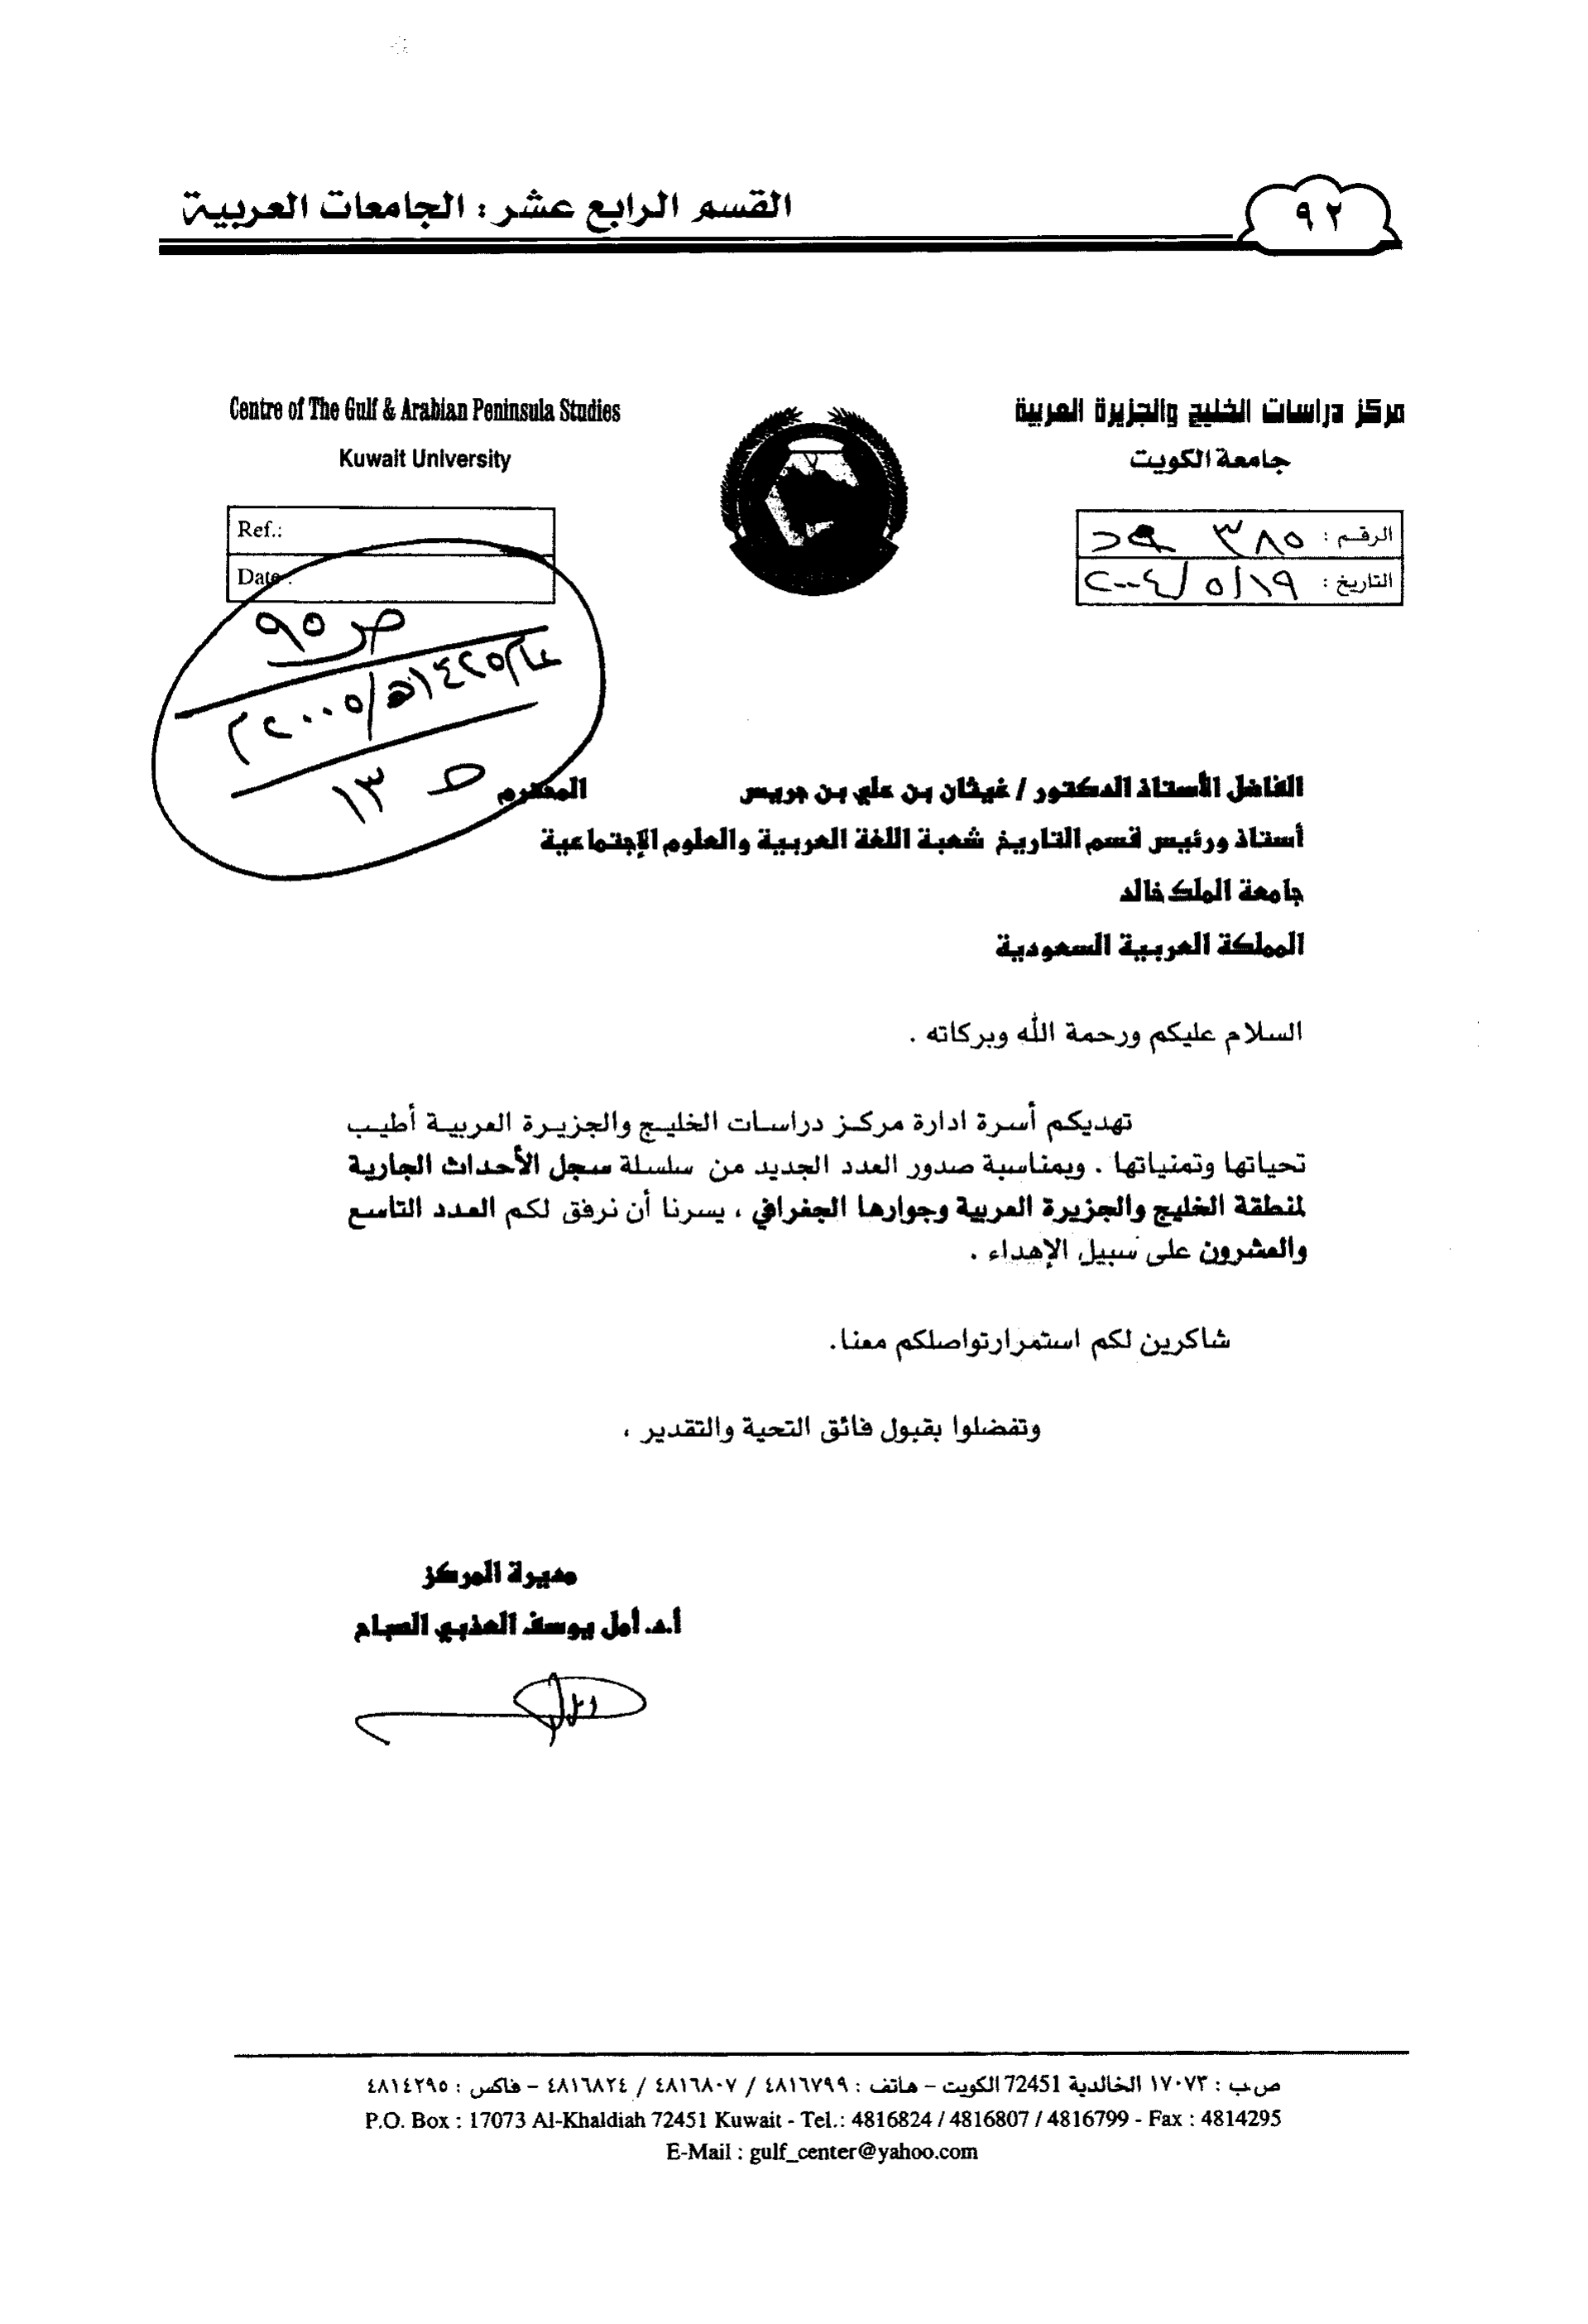 القسم الرابع عشر: الجامعات العربية
٩٢
مركز دراسات الخليج والجزيرة العربية
جامعة الكويت
Centre of The Gulf & Arabian Peninsula Studies
Kuwait University
الرقم : ٣٨٥
التاريخ : ١٩/٥/٢٠٠٤
Ref.:
Date :
ص ٩٥
عام ١٤٢٥هـ/٢٠٠٥م
١٣
الفاضل الأستاذ الدكتور / غيثان بن علي بن جريس المحترم
أستاذ ورئيس قسم التاريخ شعبة اللغة العربية والعلوم الإجتماعية
جامعة الملك خالد
المملكة العربية السعودية
السلام عليكم ورحمة الله وبركاته .
تهديكم أسرة ادارة مركز دراسات الخليج والجزيرة العربية أطيب
تحياتها وتمنياتها . وبمناسبة صدور العدد الجديد من سلسلة سجل الأحداث الجارية
لمنطقة الخليج والجزيرة العربية وجوارها الجغرافي ، يسرنا أن نرفق لكم العدد التاسع
والعشرون على سبيل الإهداء .
شاكرين لكم استمرارتواصلكم معنا.
وتفضلوا بقبول فائق التحية والتقدير ،
مديرة المركز
أ.د. أمل يوسف العذبي الصباح
ص.ب : ١٧٠٧٣ الخالدية 72451 الكويت – هاتف : ٤٨١٦٧٩٩ / ٤٨١٦٨٠٧ / ٤٨١٦٨٢٤ – فاكس : ٤٨١٤٢٩٥
P.O. Box : 17073 Al-Khaldiah 72451 Kuwait - Tel.: 4816824 / 4816807 / 4816799 - Fax : 4814295
E-Mail : gulf_center@yahoo.com